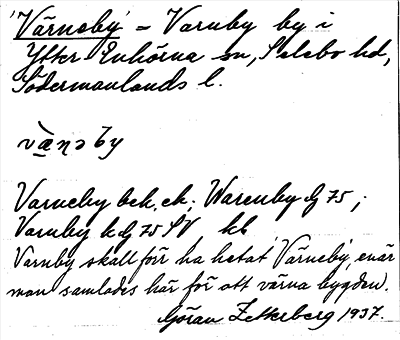 'Värneby' = Varnby by i
Ytter Enhörna sn, Selebo hd,
Södermanlands l.
vä̀ṇəby
Varneby bek, ek; Warenby dg 75;
Varnby kdg 75 SV, kb
Varnby skall förr ha hetat 'Värneby', enär
man samlades här för att värna bygden.
Göran Zetterberg 1937.